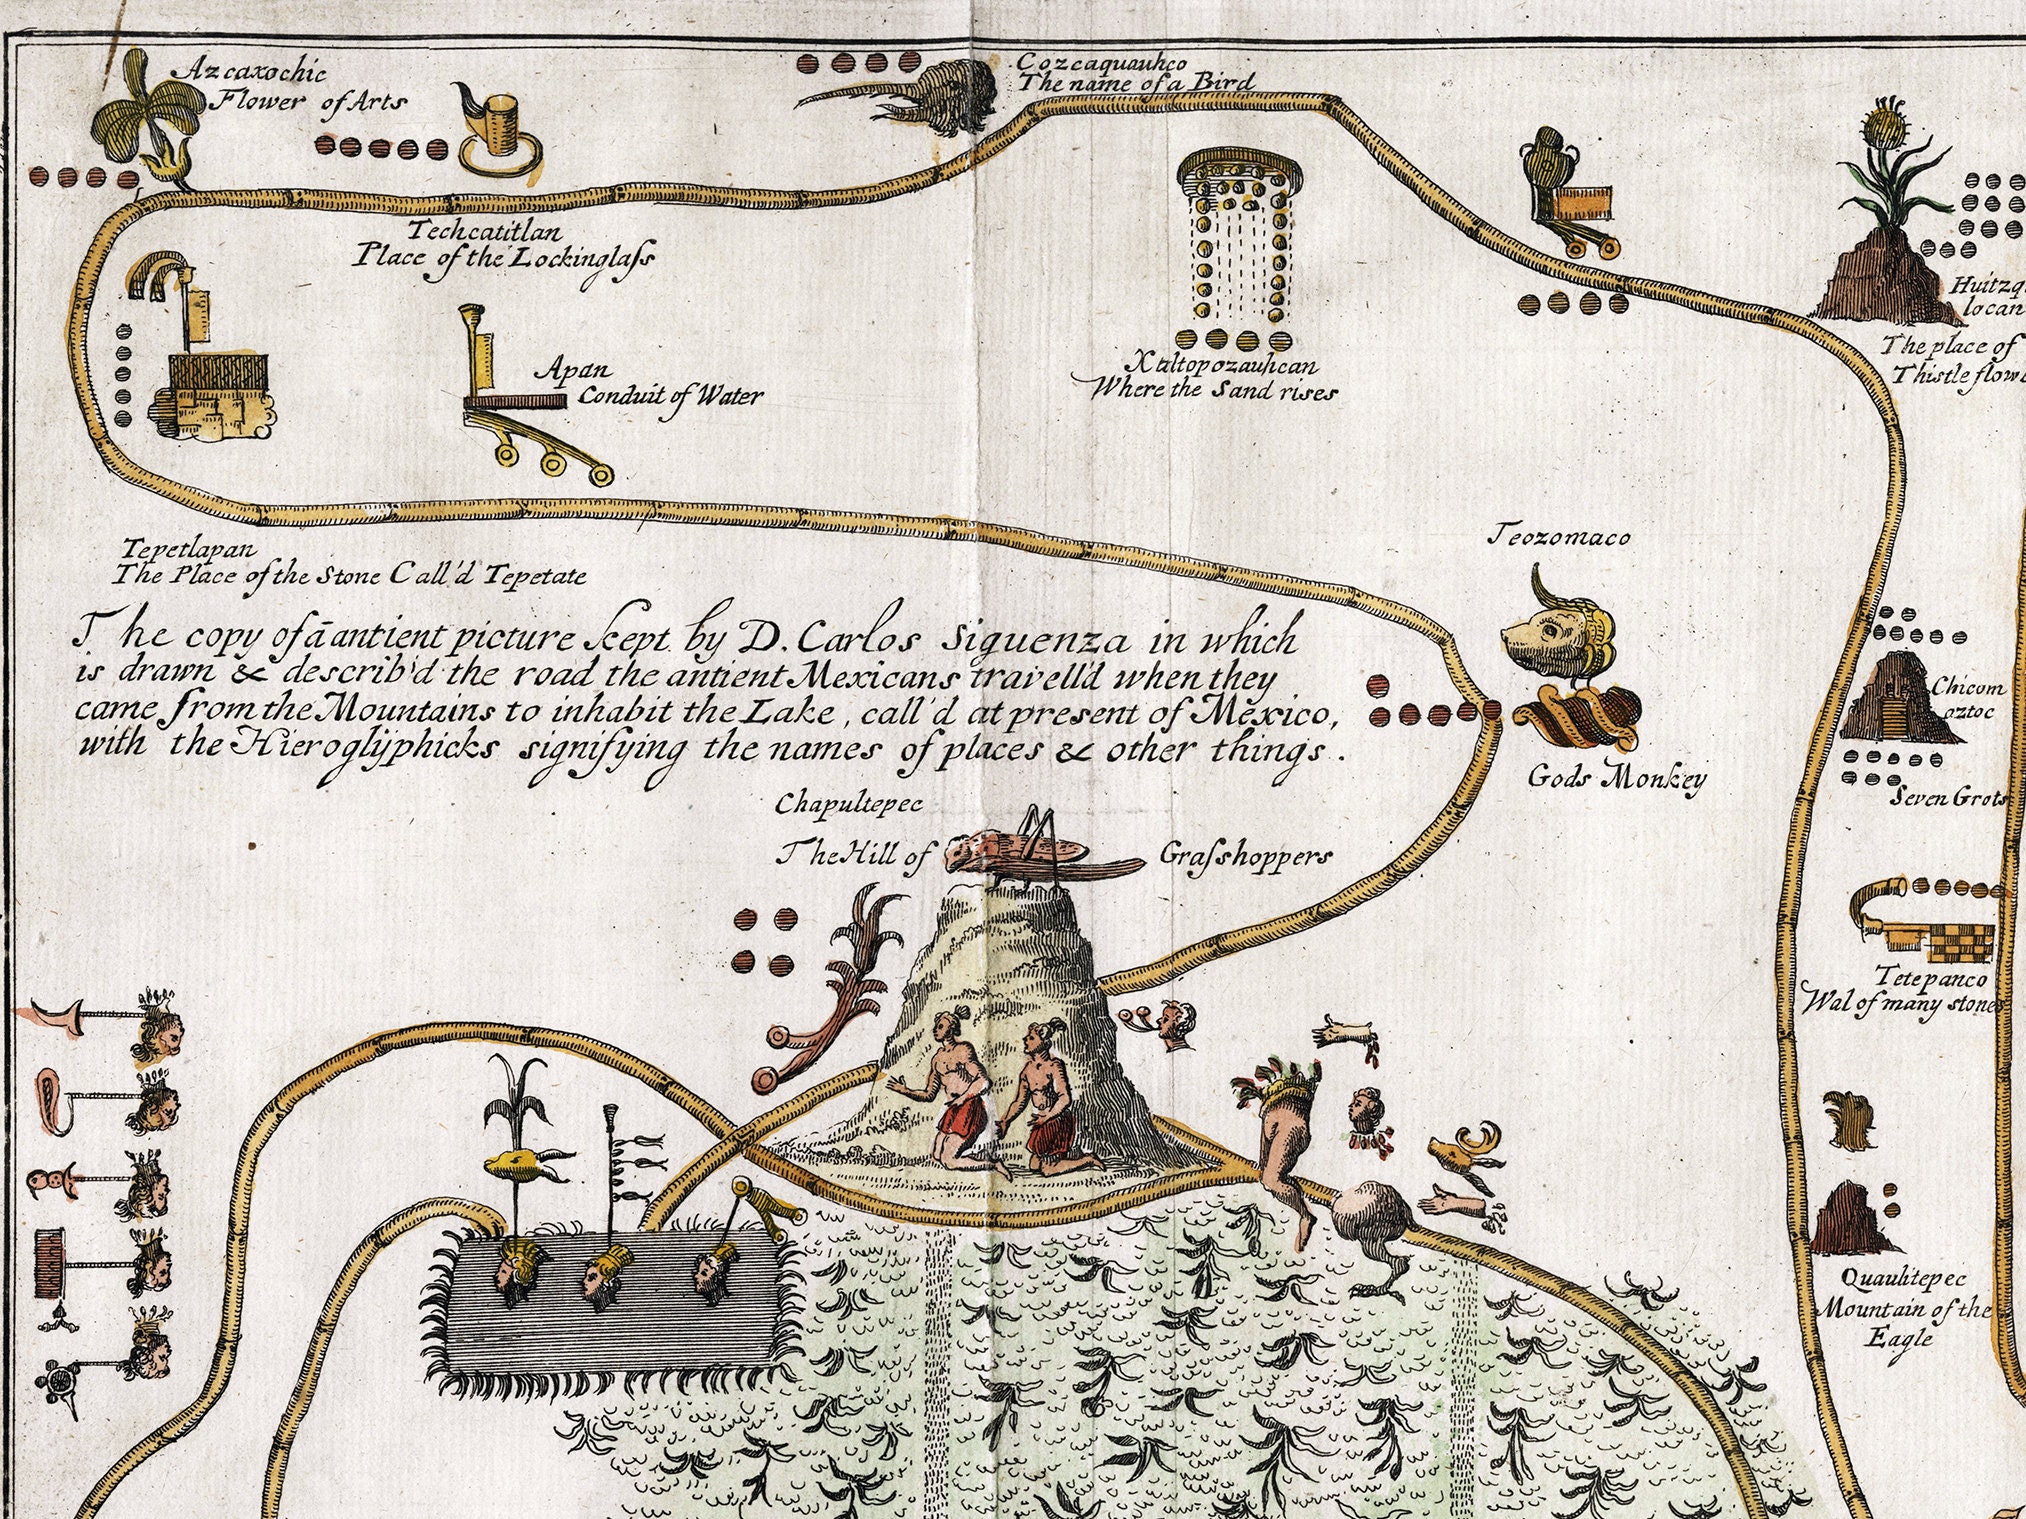 Azcaxochic
Flower of Arts
Cozcaquauhco
The name of a Bird
Techcatitlan
Place of the Lockinglass
Huitzq
locan
The place of
Thistle flow
Apan
Conduit of Water
Xaltopozauhcan
Where the Sand rises
Tepetlapan
The Place of the Stone Call'd Tepetate
Teozomaco
Gods Monkey
The copy of ā antient picture kept by D. Carlos Siguenza in which
is drawn & describ'd the road the antient Mexicans travell'd when they
came from the Mountains to inhabit the Lake, call'd at present of Mexico,
with the Hieroglyphicks signifying the names of places & other things.
Chicom
aztoc
Seven Grots
Chapultepec
The Hill of Grasshoppers
Tetepanco
Wal of many stones
Quauhtepec
Mountain of the
Eagle